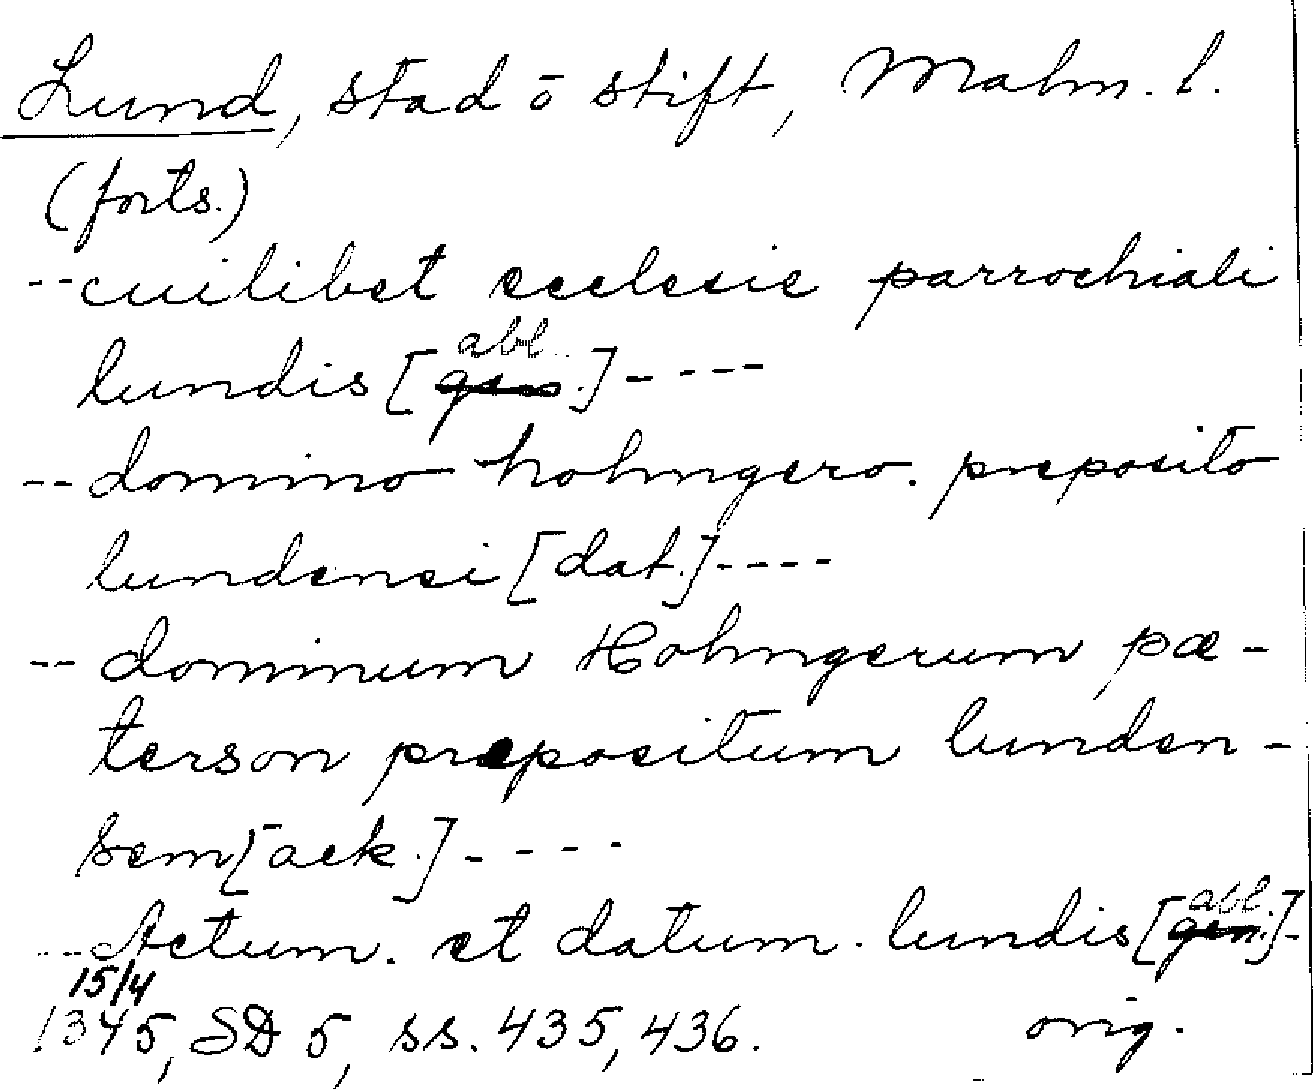 Lund, stad ō stift, Malm. l.
(forts.)
-- cuilibet ecclesie parrochiali
abl.
lundis [gen.] ----
-- domino holmgero. preposito
lundensi [dat.] ----
-- dominum Holmgerum pæ-
terson prepositum lunden-
sem [ack.] ----
abl.
--- Actum. et datum. lundis [gen.] -
15/4
1345, SD 5, ss. 435, 436. orig.